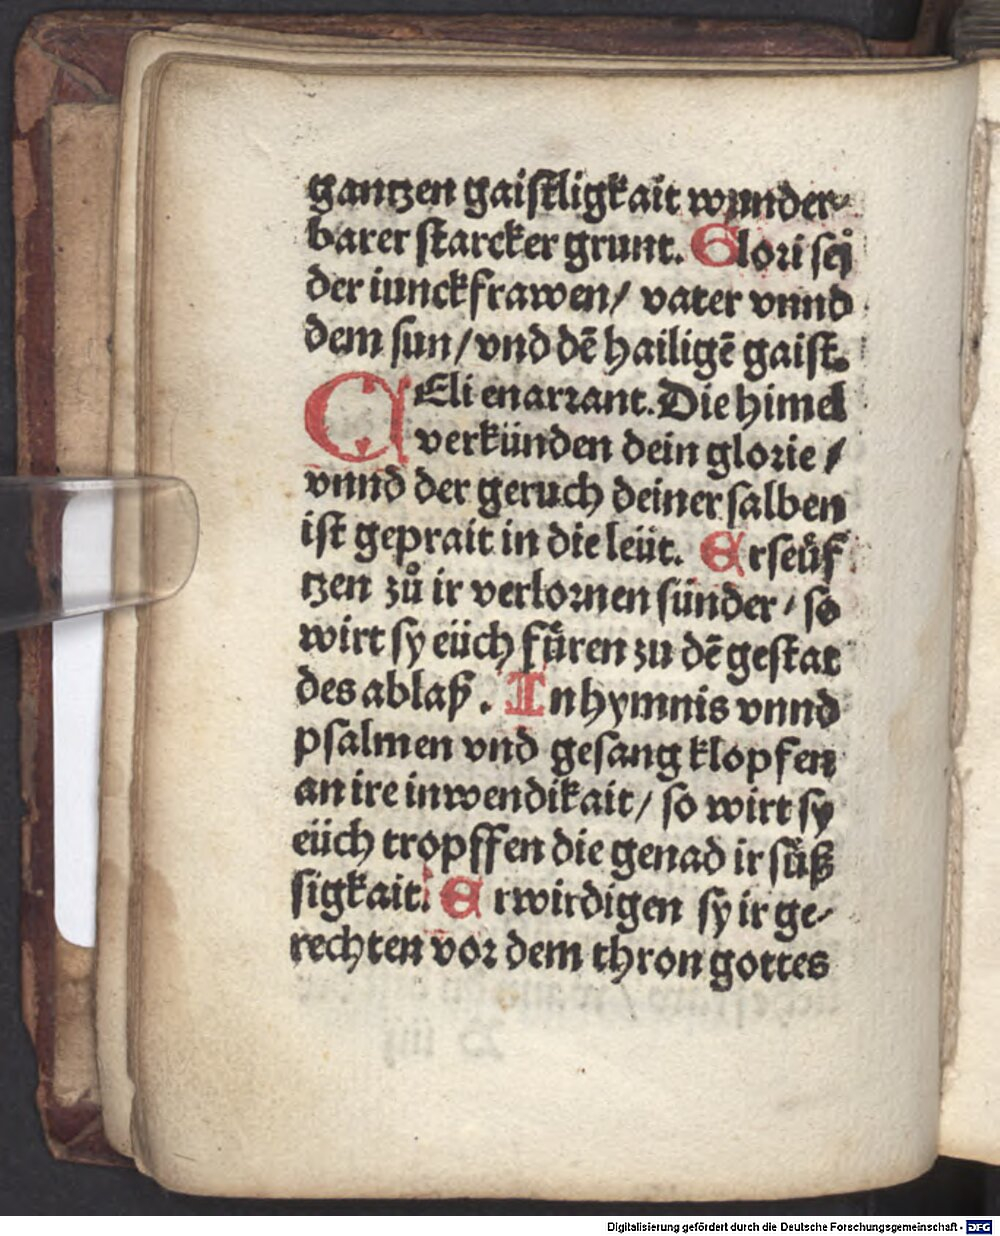 gantzen gaistligkait wunder⸗
barer starcker grunt. Glori seÿ
der iunckfrawen / vater vnnd
dem sun / vnd dē hailigē gaist.
CEli enarrant. Die himel
verkünden dein glorie /
vnnd der geruch deiner salben
ist geprait in die leüt. Erseüf
tzen zů ir verlornen sünder / so
wirt sy eüch fůren zu dē gestat
des ablaß. In hymnis vnnd
psalmen vnd gesang klopfen
an ire inwendikait / so wirt sy
eüch tropffen die genad ir sůß
sigkait. Erwirdigen sy ir ge⸗
rechten vor dem thron gottes
Digitalisierung gefördert durch die Deutsche Forschungsgemeinschaft - DFG